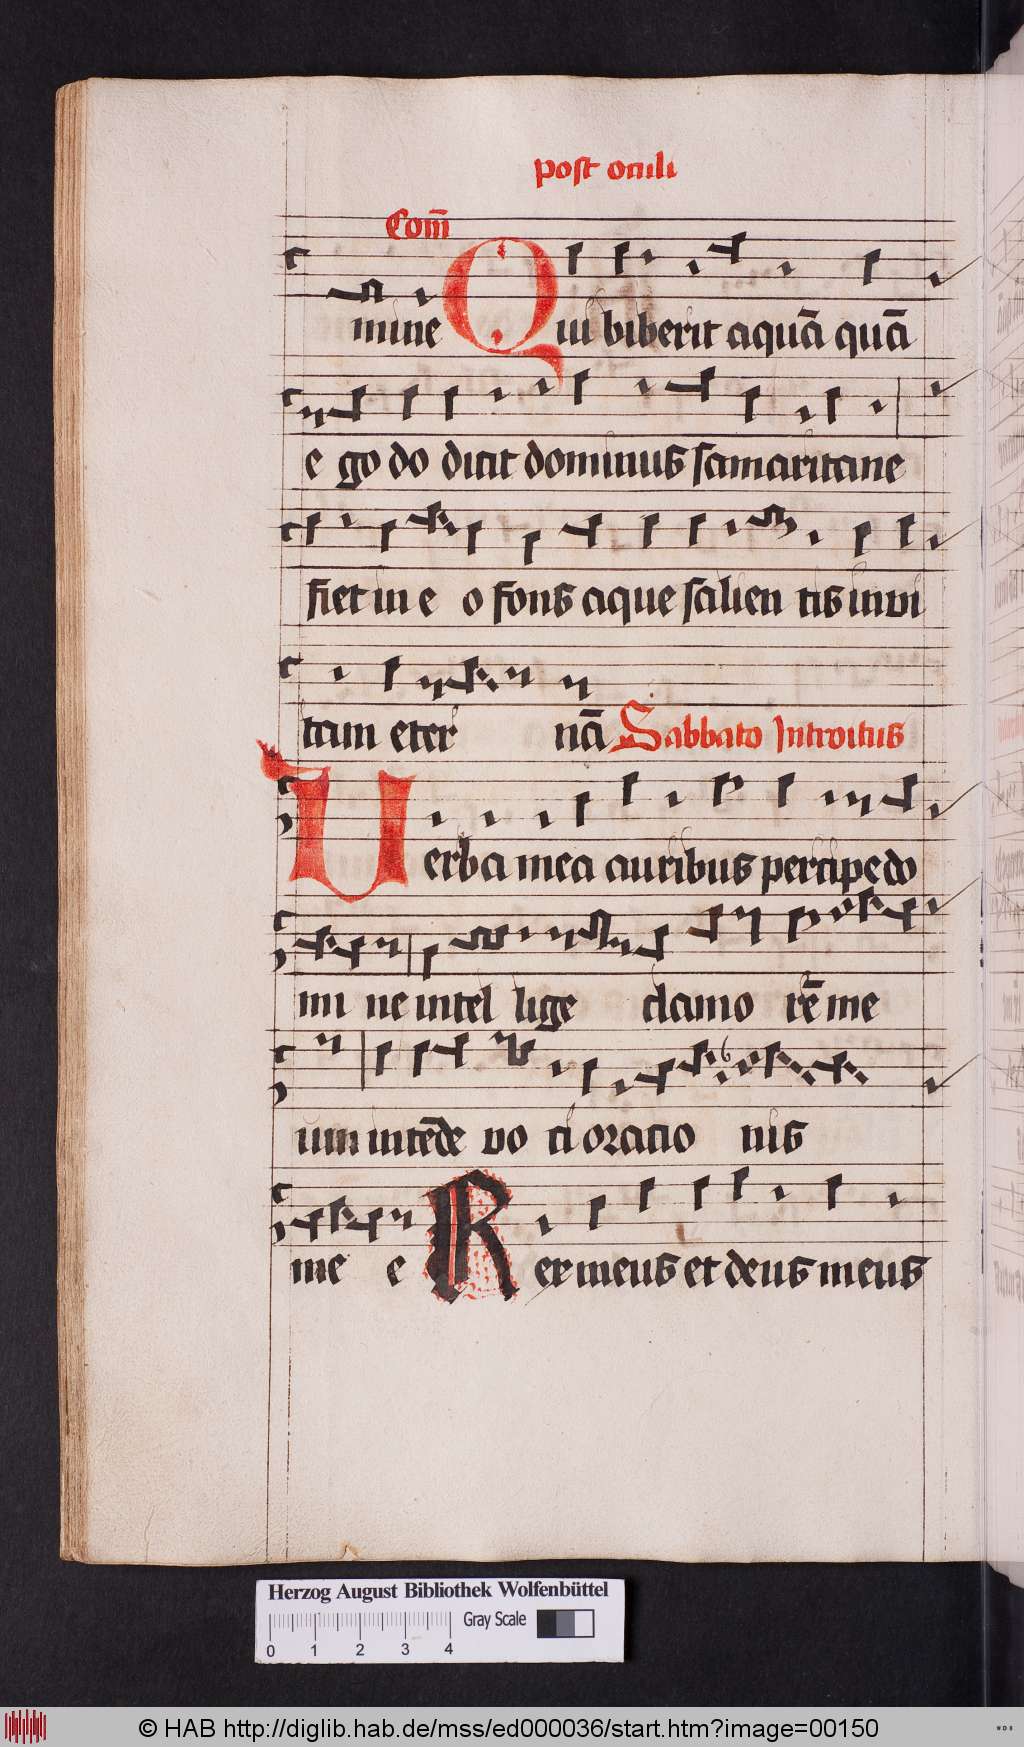 post oculi
Com̄
mine Qui biberit aquā quā
e go do dicit dominus samaritane
fiet in e o fons aque salien tis in vi
tam eter nā Sabbato Introitus
Uerba mea auribus percipe do
mi ne intel lige clamo rē me
um intēde vo ci oratio nis
me e Rex meus et deus meus
Herzog August Bibliothek Wolfenbüttel
Gray Scale
0 1 2 3 4
© HAB http://diglib.hab.de/mss/ed000036/start.htm?image=00150